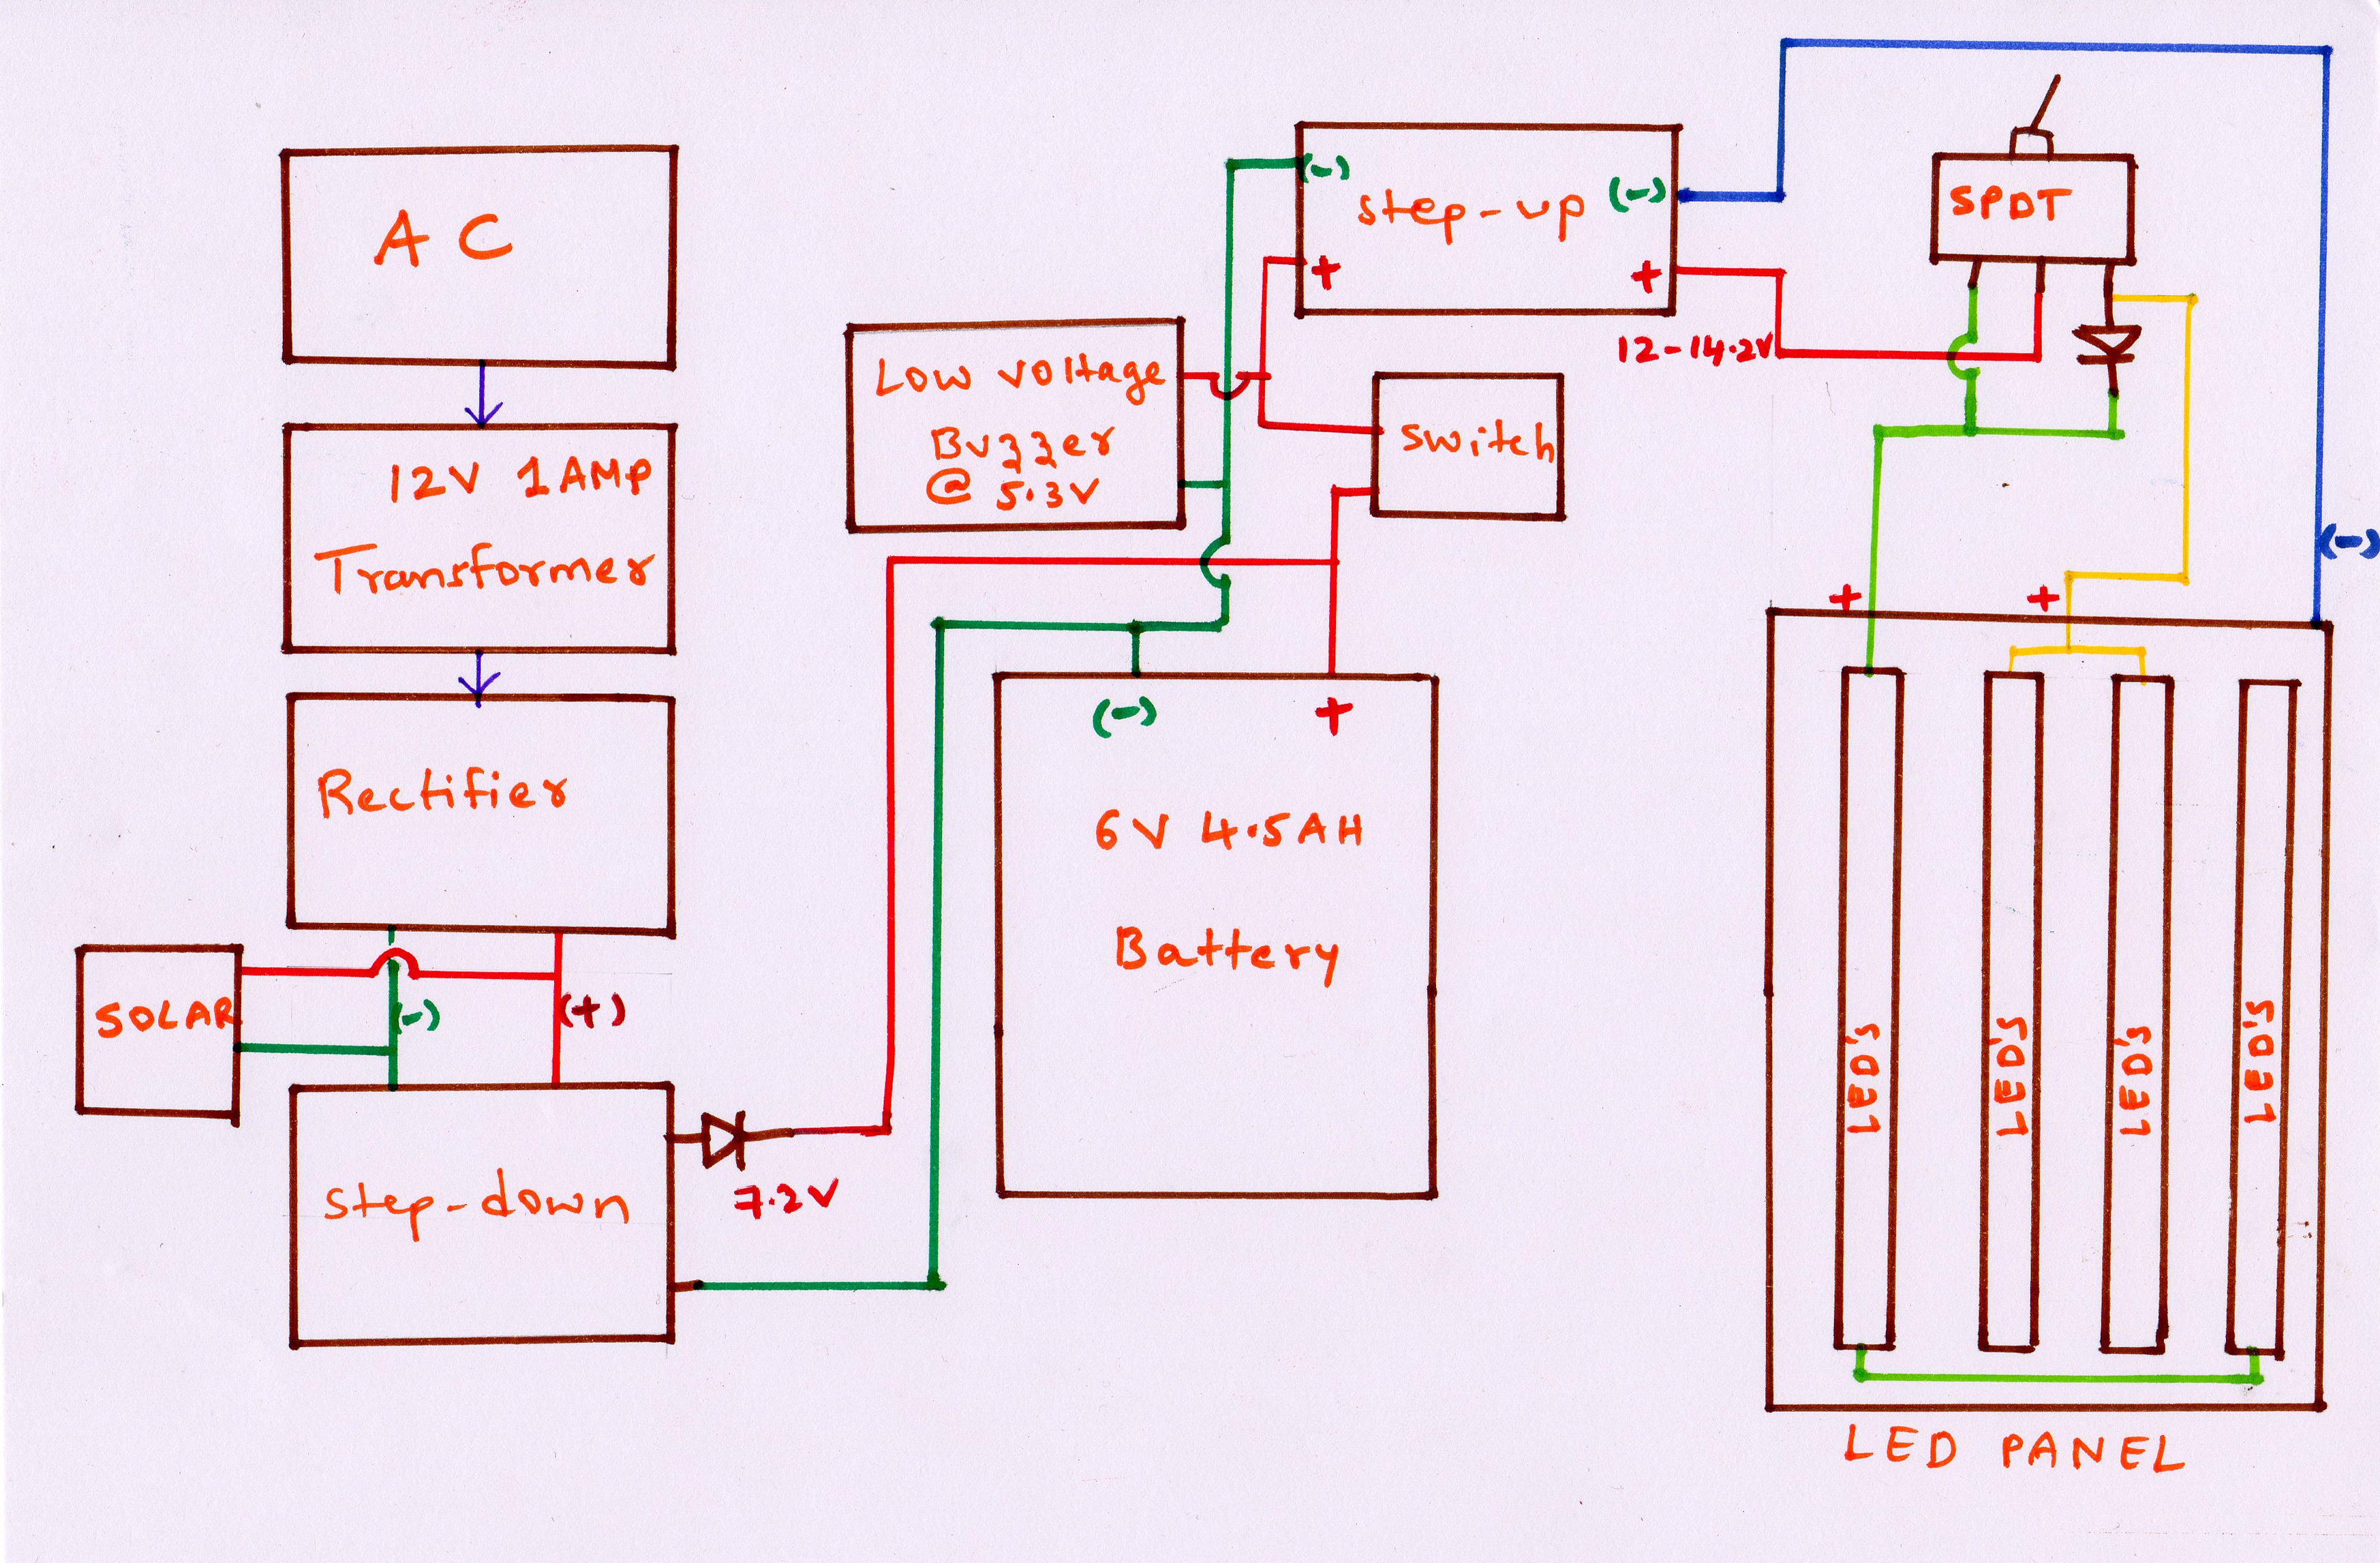 AC
12V 1AMP
Transformer
Rectifier
SOLAR
(-)
(+)
step-down
7.2V
Low voltage
Buzzer
@ 5.3V
(-)
step-up
(-)
+
+
switch
12-14.2V
SPDT
(-)
+
6V 4.5AH
Battery
(-)
+
+
LED'S
LED'S
LED'S
LED'S
LED PANEL